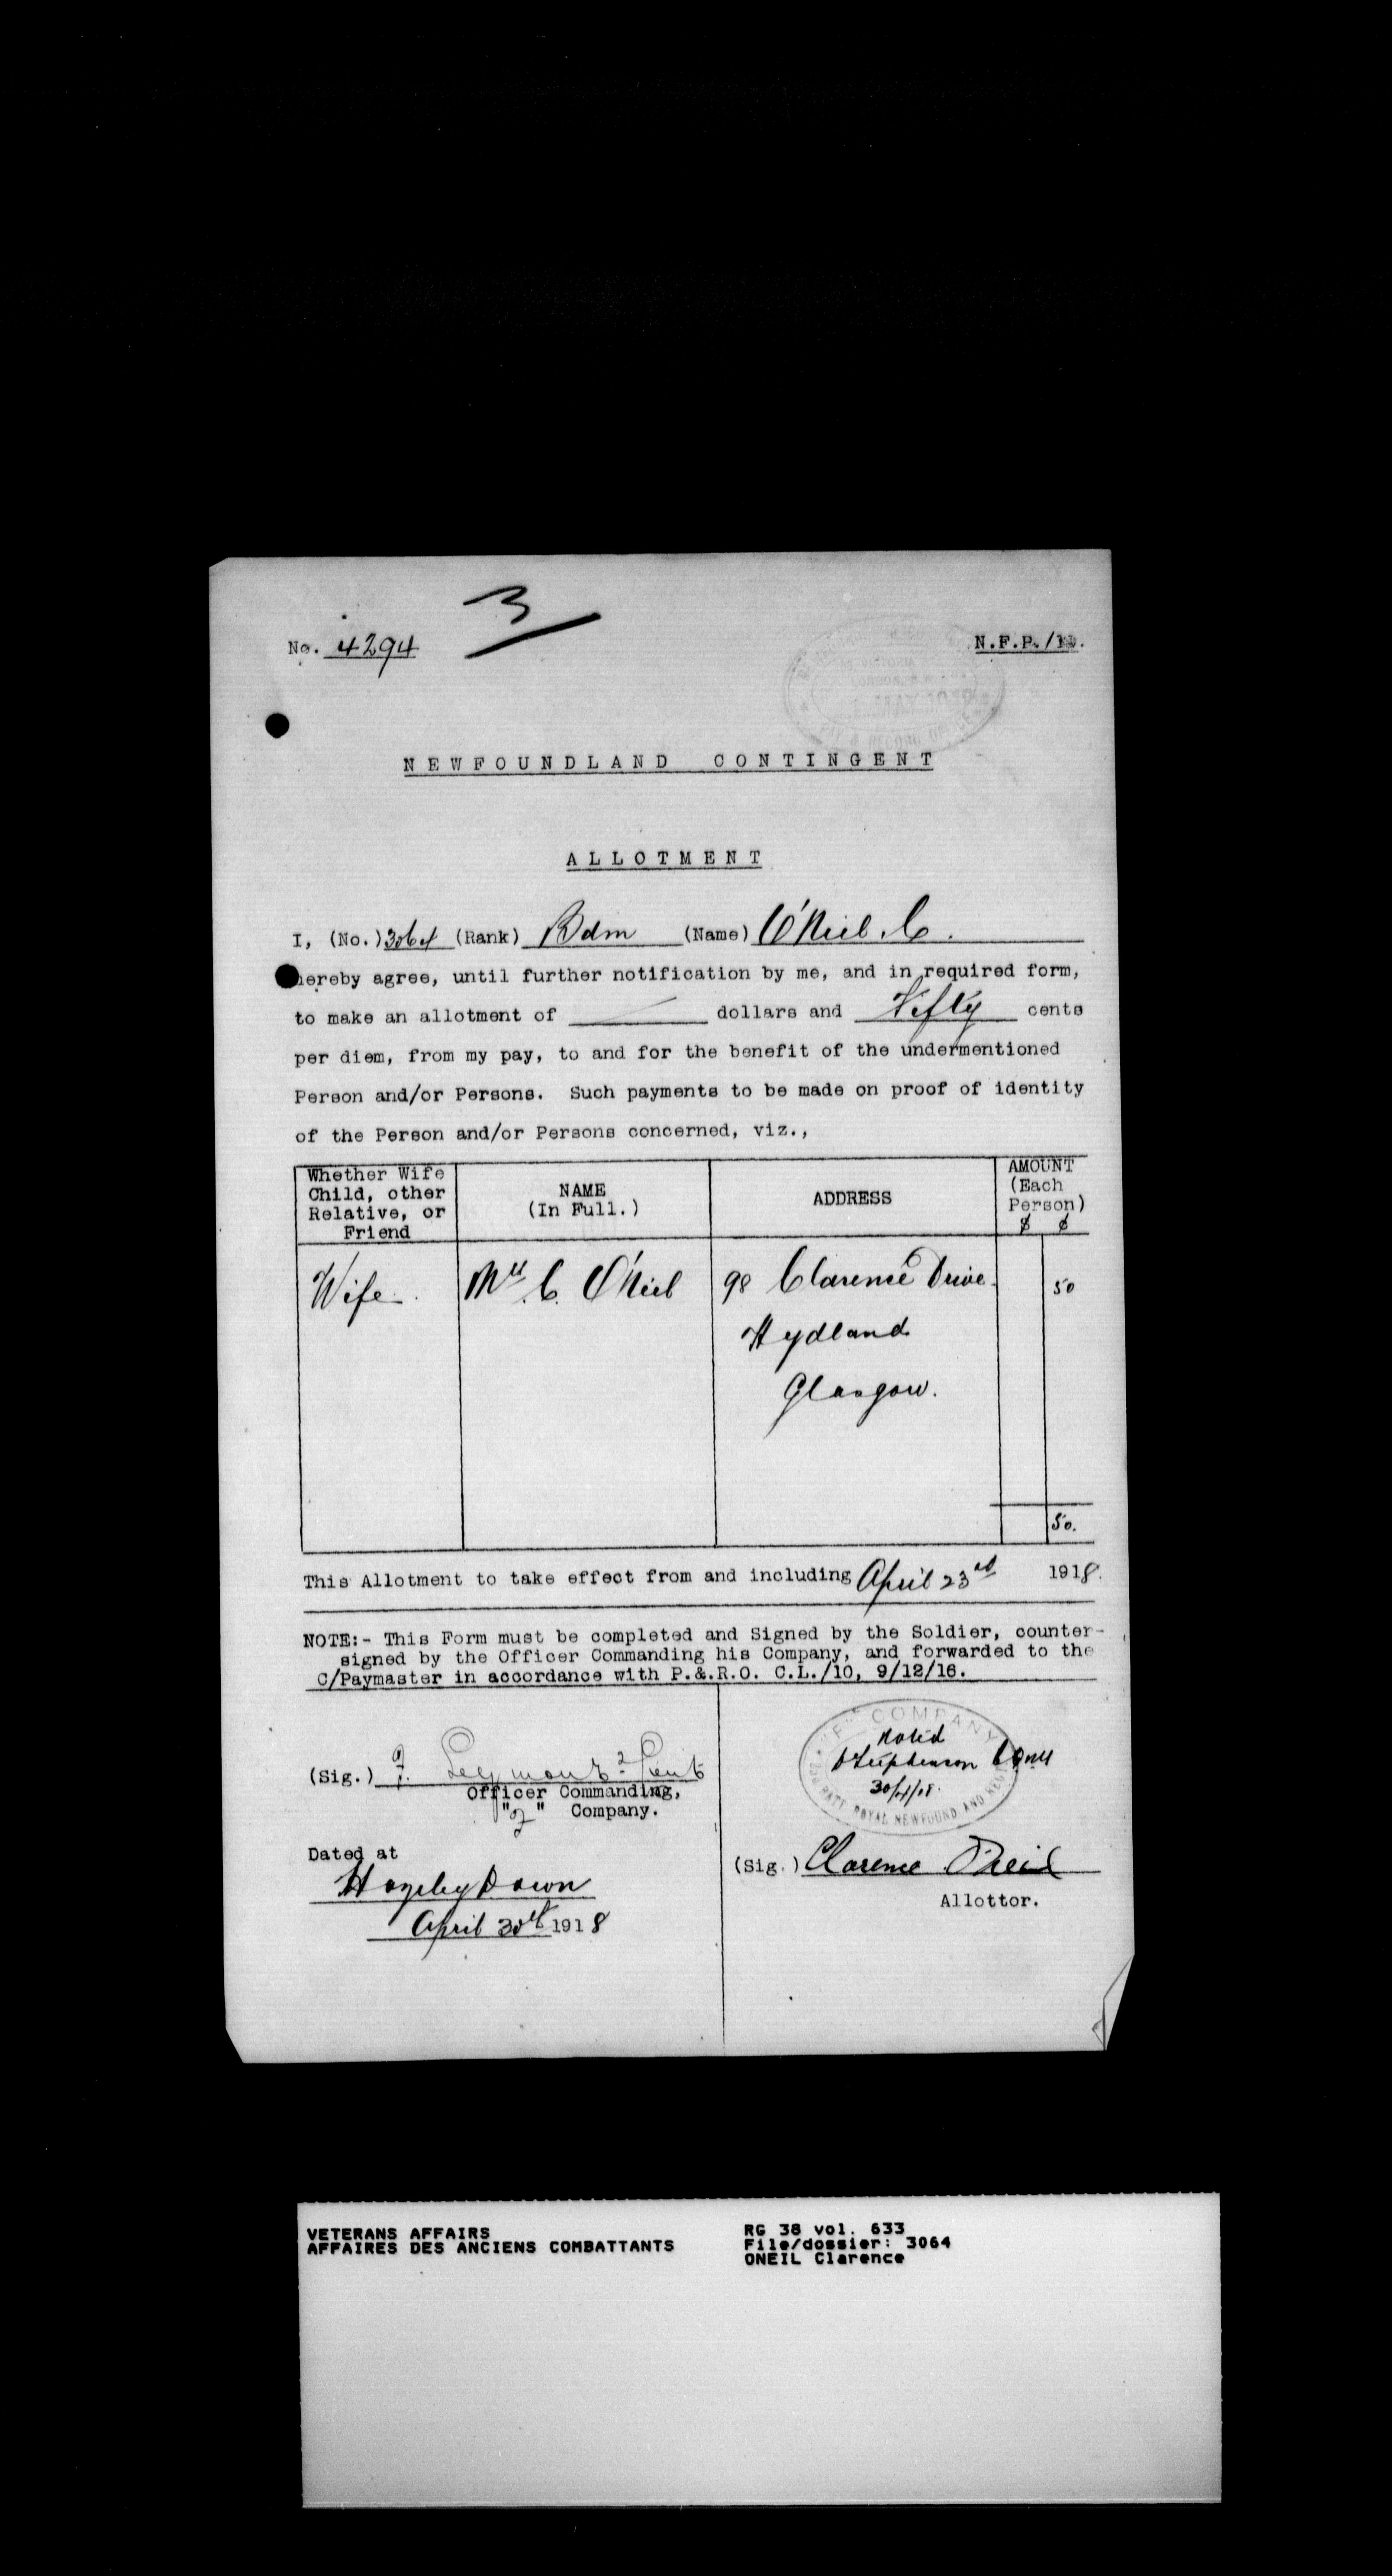 3
No. 4294
N.F.P./1
MAY
PAY & RECORD OFFICE
NEWFOUNDLAND CONTINGENT
ALLOTMENT
I, (No.) 3064 (Rank) Bdm (Name) O'Neil. C.
hereby agree, until further notification by me, and in required form,
to make an allotment of dollars and Fifty cents
per diem, from my pay, to and for the benefit of the undermentioned
Person and/or Persons. Such payments to be made on proof of identity
of the Person and/or Persons concerned, viz.,
Whether Wife
Child, other
Relative, or
Friend
NAME
(In Full.)
ADDRESS
AMOUNT
(Each
Person)
$ ¢
Wife. Mrs. C. O'Neil 98 Clarence Drive. 50
Hydland
Glasgow.
50.
This Allotment to take effect from and including April 23rd 1918.
NOTE:- This Form must be completed and Signed by the Soldier, counter-
signed by the Officer Commanding his Company, and forwarded to the
C/Paymaster in accordance with P.&.R.O. C.L./10, 9/12/16.
"F" COMPANY
Noted
Stephenson
30/4/18.
BATT ROYAL NEWFOUNDLAND REGT
(Sig.) 2/Lieut
Officer Commanding,
"F" Company.
Dated at
Hazeley Down
April 30th 1918
(Sig.) Clarence O'Neil
Allottor.
VETERANS AFFAIRS
AFFAIRES DES ANCIENS COMBATTANTS
RG 38 vol. 633
File/dossier: 3064
ONEIL Clarence